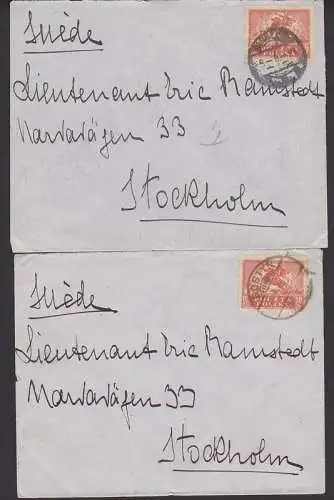 Suède
Lieutenant Eric Ramstedt
Narvavägen 33
Stockholm
Suède
Lieutenant Eric Ramstedt
Narvavägen 33
Stockholm